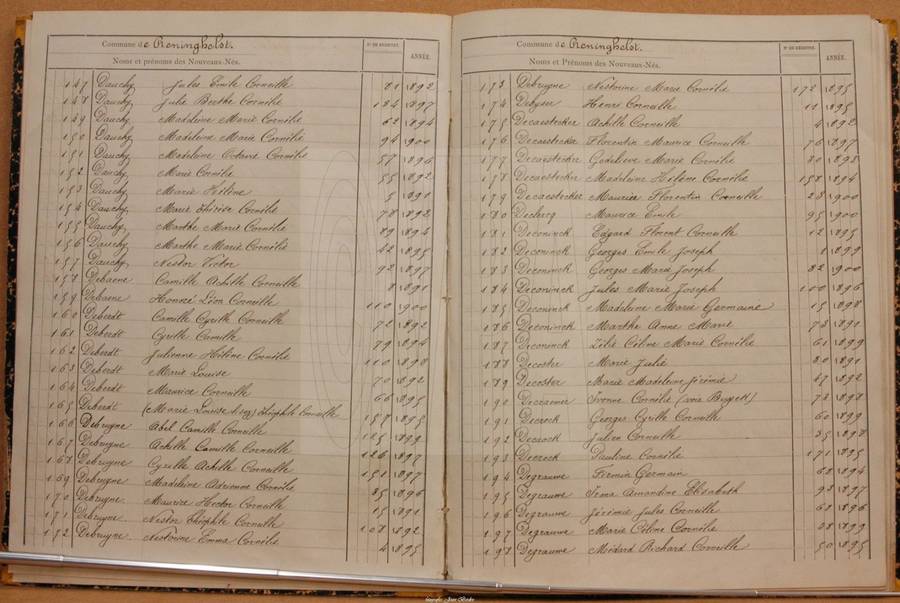 Commune de Reninghelst.
Noms et prénoms des Nouveaux-Nés.
N° DU REGISTRE.
ANNÉE.
147 Dauchy Jules Emile Corneille 81 1892
148 Dauchy Julie Berthe Cornélie 184 1897
149 Dauchy Madeleine Marie Cornélie 62 1894
150 Dauchy Madeleine Marie Cornélie 94 1900
151 Dauchy Madeleine Octavie Cornélie 57 1896
152 Dauchy Marie Cornélie 55 1892
153 Dauchy Marie Hélène 5 1891
154 Dauchy Marie Thérèse Cornélie 78 1892
155 Dauchy Marthe Marie Cornélie 89 1894
156 Dauchy Marthe Marie Cornélie 42 1895
157 Dauchy Nestor Victor 92 1897
158 Debaene Camille Achille Corneille 8 1891
159 Debaene Honoré Léon Corneille 110 1900
160 Deberdt Camille Cyrille Corneille 72 1892
161 Deberdt Cyrille Camille 79 1894
162 Deberdt Julienne Hélène Cornélie 110 1898
163 Deberdt Marie Louise 70 1892
164 Deberdt Maurice Corneille 66 1895
165 Deberdt (Marie Louise Théophile Corneille 157 1895
166 Debruyne Abel Camille Corneille 125 1899
167 Debruyne Achille Camille Corneille 126 1897
168 Debruyne Cyrille Achille Corneille 151 1897
169 Debruyne Madeleine Adrienne Cornélie 85 1896
170 Debruyne Maurice Hector Corneille 15 1891
171 Debruyne Nestor Théophile Corneille 108 1892
172 Debruyne Nestorine Emma Cornélie 4 1895
Commune de Reninghelst.
Noms et Prénoms des Nouveaux-Nés.
N° DU REGISTRE.
ANNÉE.
173 Debruyne Nestorine Marie Cornélie 172 1895
174 Debyser Henri Corneille 11 1895
175 Decaestecker Achille Corneille 4 1892
176 Decaestecker Florentin Maurice Corneille 76 1897
177 Decaestecker Godelieve Marie Cornélie 80 1898
178 Decaestecker Madeleine Hélène Cornélie 158 1894
179 Decaestecker Maurice Florentin Corneille 28 1900
180 Declercq Maurice Emile 95 1900
181 Deconinck Edgard Florent Corneille 12 1895
182 Deconinck Georges Emile Joseph 1 1899
183 Deconinck Georges Marie Joseph 82 1900
184 Deconinck Jules Marie Joseph 100 1896
185 Deconinck Madeleine Marie Germaine 15 1898
186 Deconinck Marthe Anne Marie 78 1891
187 Deconinck Zélie Céline Marie Cornélie 61 1899
188 Decoster Marie Julie 80 1891
189 Decoster Marie Madeleine Jérémie 47 1892
190 Decraemer Ivonne Cornélie (voir 73 1898
191 Decrock Georges Cyrille Corneille 60 1899
192 Decrock Julien Corneille 35 1898
193 Decrock Pauline Cornélie 171 1895
194 Degraeuwe Firmin Germain 68 1894
195 Degraeuwe Irma Amandine Elisabeth 98 1897
196 Degraeuwe Jérémie Jules Corneille 68 1896
197 Degraeuwe Marie Céline Cornélie 88 1899
198 Degraeuwe Médard Richard Corneille 50 1895